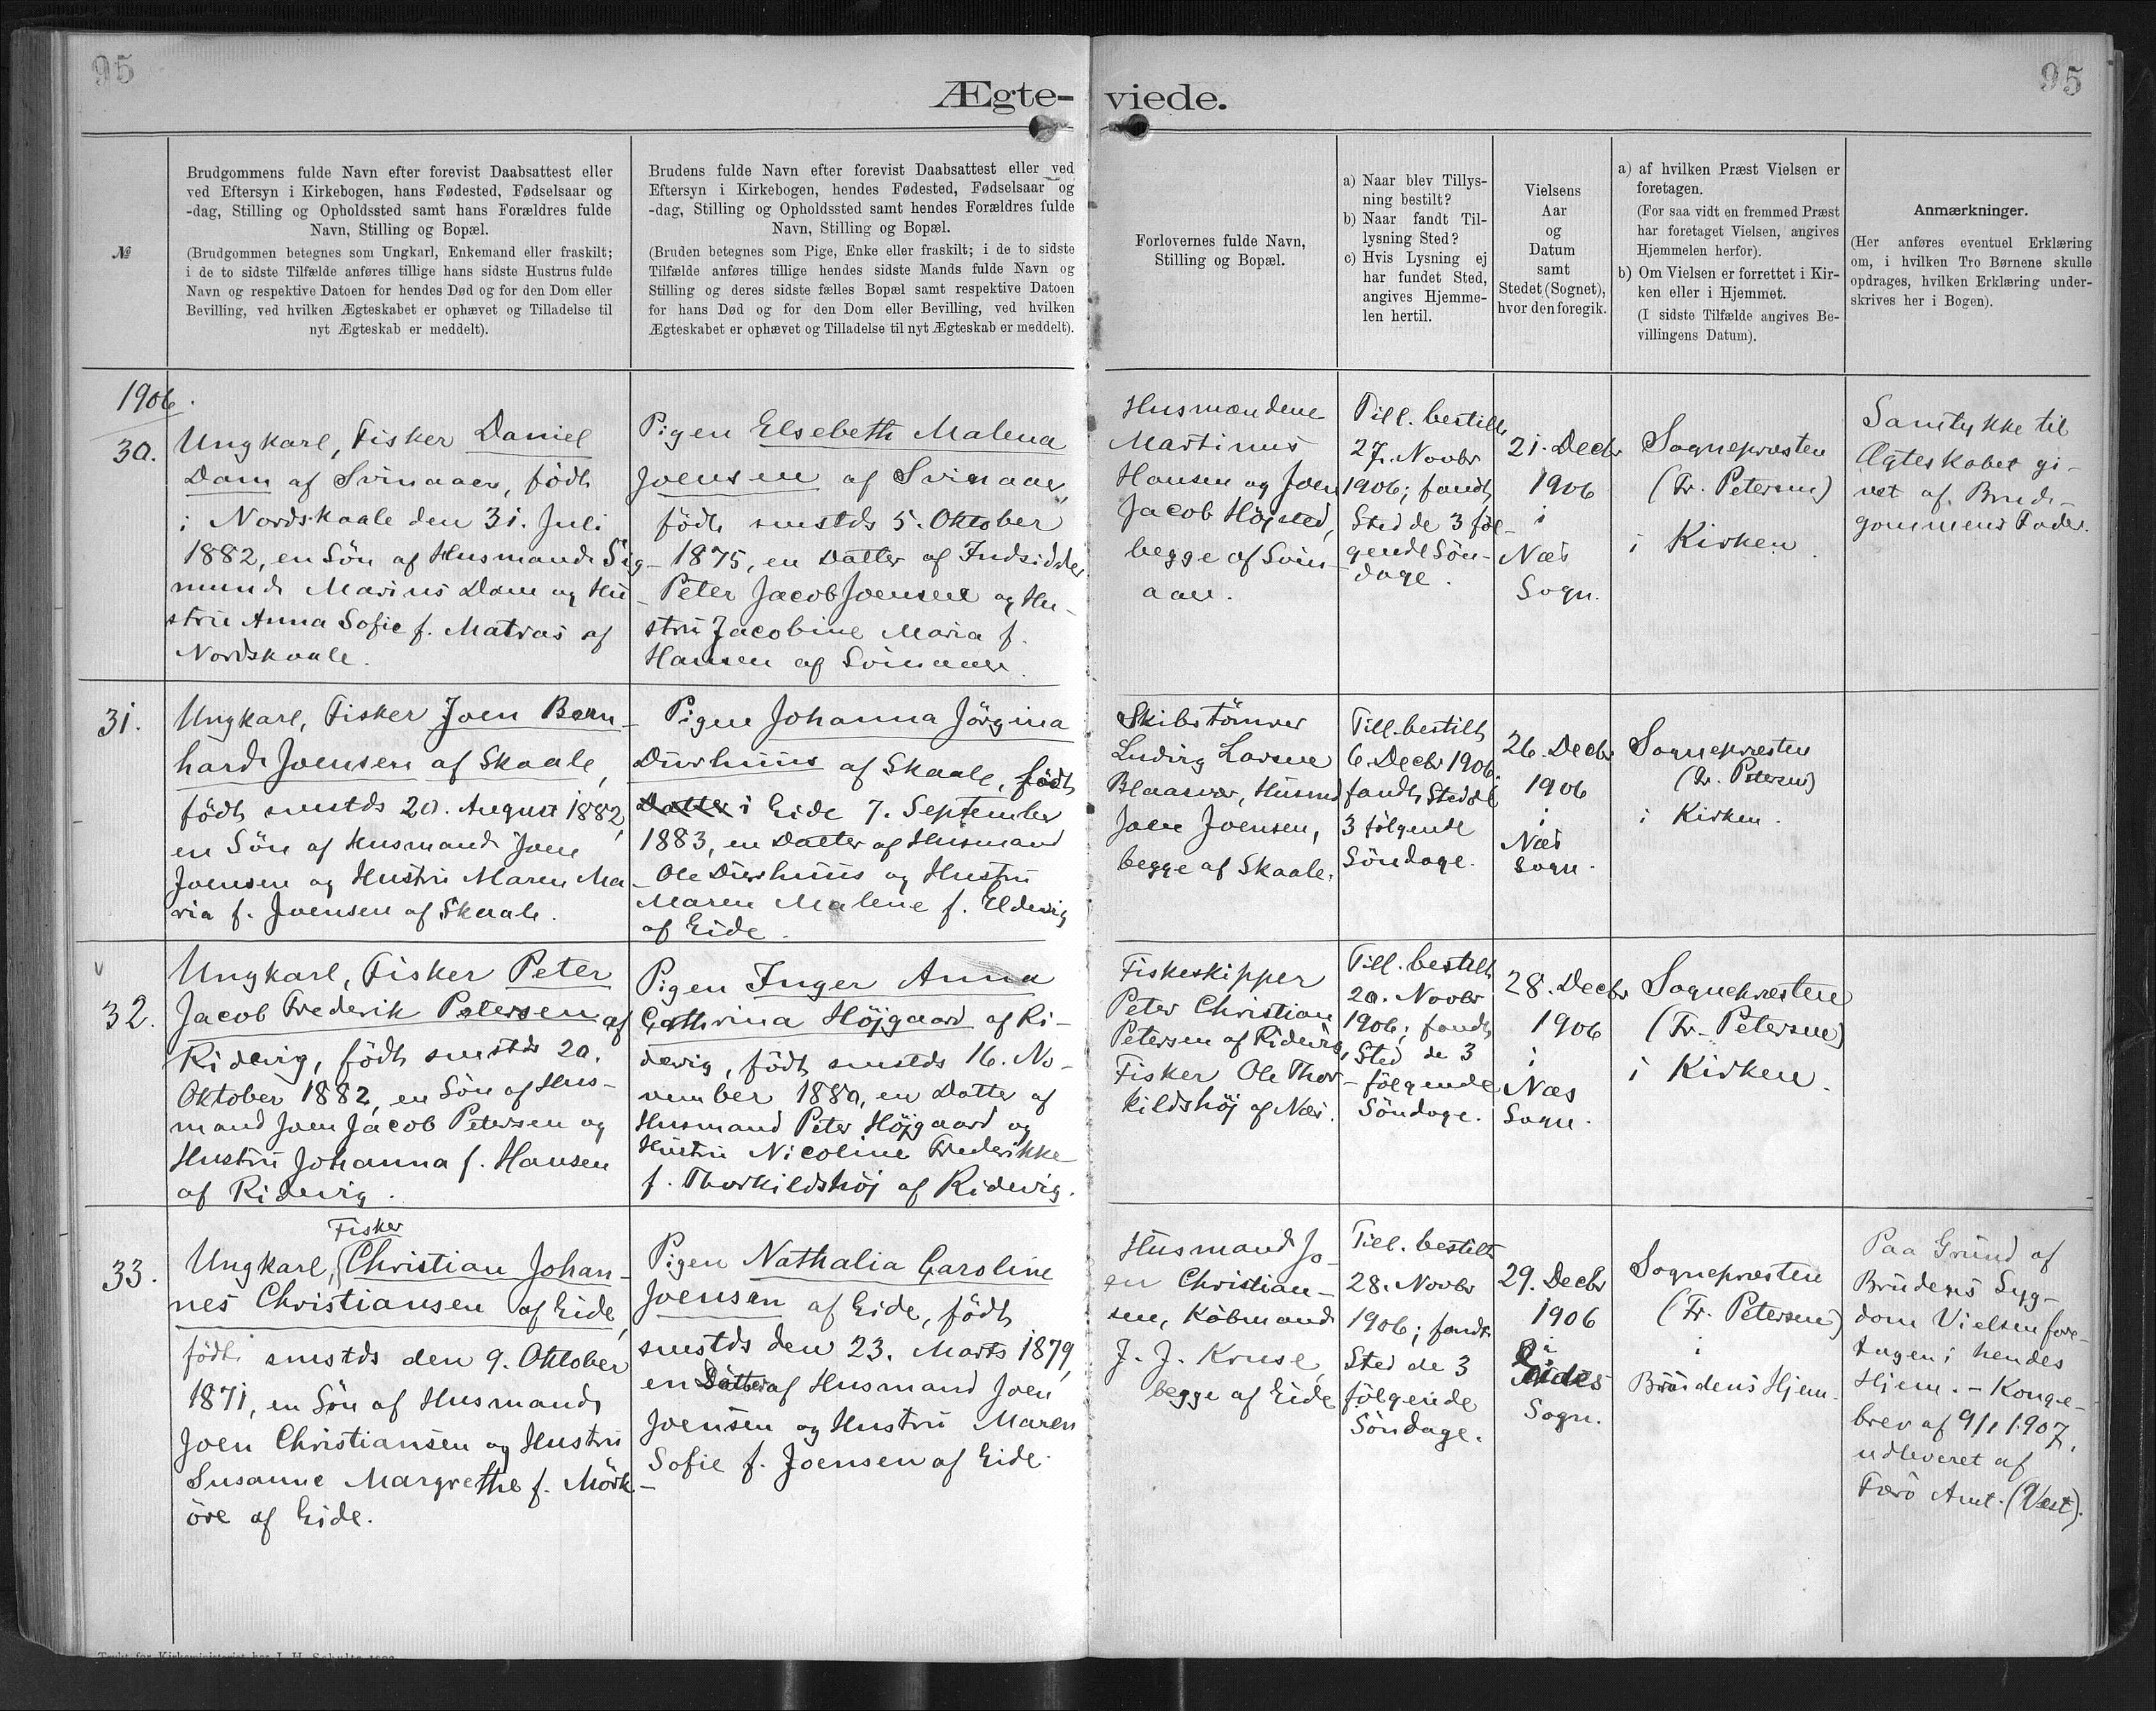 95
95
Ægte-
viede.
№
Brudgommens fulde Navn efter forevist Daabsattest eller
ved Eftersyn i Kirkebogen, hans Fødested, Fødselsaar og
-dag, Stilling og Opholdssted samt hans Forældres fulde
Navn, Stilling og Bopæl.
(Brudgommen betegnes som Ungkarl, Enkemand eller fraskilt;
i de to sidste Tilfælde anføres tillige hans sidste Hustrus fulde
Navn og respektive Datoen for hendes Død og for den Dom eller
Bevilling, ved hvilken Ægteskabet er ophævet og Tilladelse til
nyt Ægteskab er meddelt).
Brudens fulde Navn efter forevist Daabsattest eller ved
Eftersyn i Kirkebogen, hendes Fødested, Fødselsaar og
-dag, Stilling og Opholdssted samt hendes Forældres fulde
Navn, Stilling og Bopæl.
(Bruden betegnes som Pige, Enke eller fraskilt; i de to sidste
Tilfælde anføres tillige hendes sidste Mands fulde Navn og
Stilling og deres sidste fælles Bopæl samt respektive Datoen
for hans Død og for den Dom eller Bevilling, ved hvilken
Ægteskabet er ophævet og Tilladelse til nyt Ægteskab er meddelt).
Forlovernes fulde Navn,
Stilling og Bopæl.
a) Naar blev Tillys-
ning bestilt?
b) Naar fandt Til-
lysning Sted?
c) Hvis Lysning ej
har fundet Sted,
angives Hjemme-
len hertil.
Vielsens
Aar
og
Datum
samt
Stedet (Sognet),
hvor den foregik.
a) af hvilken Præst Vielsen er
foretagen.
(For saa vidt en fremmed Præst
har foretaget Vielsen, angives
Hjemmelen herfor).
b) Om Vielsen er forrettet i Kir-
ken eller i Hjemmet.
(I sidste Tilfælde angives Be-
villingens Datum).
Anmærkninger.
(Her anføres eventuel Erklæring
om, i hvilken Tro Børnene skulle
opdrages, hvilken Erklæring under-
skrives her i Bogen).
1906.
30.
Ungkarl, Fisker Daniel
Dam af Svinaaer, født
i Nordskaale den 31. Juli
1882, en Søn af Husmand Sig-
mund Marius Dam og Hu-
stru Anna Sofie f. Matras af
Nordskaale.
Pigen Elsebeth Malena
Joensen af Svinaaer,
født smstds 5. Oktober
1875, en Datter af Indsidder
Peter Jacob Joensen og Hu-
stru Jacobine Maria f.
Hansen af Svinaaer.
Husmændene
Martinus
Hansen og Joen
Jacob Højsted,
begge af Svin-
aaer.
Till. bestilt
27. Novbr
1906; fandt
Sted de 3 føl-
gende Søn-
dage.
21. Decbr
1906
i
Næs
Sogn.
Sognepræsten
(Fr. Petersen)
i Kirken.
Samtykke til
Ægteskabet gi-
vet af Brud-
gommens Fader.
31.
Ungkarl, Fisker Joen Bern-
hard Joensen af Skaale,
født smstds 20. August 1882,
en Søn af Husmand Joen
Joensen og Hustru Maren Ma-
ria f. Joensen af Skaale.
Pigen Johanna Jørgina
Durhuus af Skaale, født
Datter i Eide 7. September
1883, en Datter af Husmand
Ole Durhuus og Hustru
Maren Malene f. Eldevig
af Eide.
Skibstømrer
Ludvig Larsen
Blaasvær, Husmd
Joen Joensen,
begge af Skaale.
Till. bestilt
6 Decbr 1906;
fandt Sted de
3 følgende
Søndage.
26. Decbr
1906
i
Næs
Sogn.
Sognepræsten
(Fr. Petersen)
i Kirken.
32.
Ungkarl, Fisker Peter
Jacob Frederik Petersen af
Ridevig, født smstds 20.
Oktober 1882, en Søn af Hus-
mand Joen Jacob Petersen og
Hustru Johanna f. Hansen
af Ridevig.
Pigen Inger Anna
Cathrina Højgaard af Ri-
devig, født smstds 16. No-
vember 1880, en Datter af
Husmand Peter Højgaard og
Hustru Nicoline Frederikke
f. Thorkildshøj af Ridevig.
Fiskeskipper
Peter Christian
Petersen af Ridevig,
Fisker Ole Thor-
kildshøj af Næs.
Till. bestilt
20. Novbr
1906; fandt
Sted de 3
følgende
Søndage.
28. Decbr
1906
i
Næs
Sogn.
Sognepræsten
(Fr. Petersen)
i Kirken.
33.
Fisker
Ungkarl, Christian Johan-
nes Christiansen af Eide,
født smstds den 9. Oktober
1871, en Søn af Husmand
Joen Christiansen og Hustru
Susanne Margrethe f. Mørk-
øre af Eide.
Pigen Nathalia Caroline
Joensen af Eide, født
smstds den 23. Marts 1879,
en Datter af Husmand Joen
Joensen og Hustru Maren
Sofie f. Joensen af Eide.
Husmand Jo-
en Christian-
sen, Købmand
J. J. Kruse,
begge af Eide
Till. bestilt
28. Novbr
1906; fandt
Sted de 3
følgende
Søndage.
29. Decbr
1906
i
Eides
Sogn.
Sognepræsten
(Fr. Petersen)
i
Brudens Hjem.
Paa Grund af
Brudens Syg-
dom Vielsen fore-
tagen i hendes
Hjem. - Konge-
brev af 9/1 1907,
udleveret af
Færø Amt. (Vest).